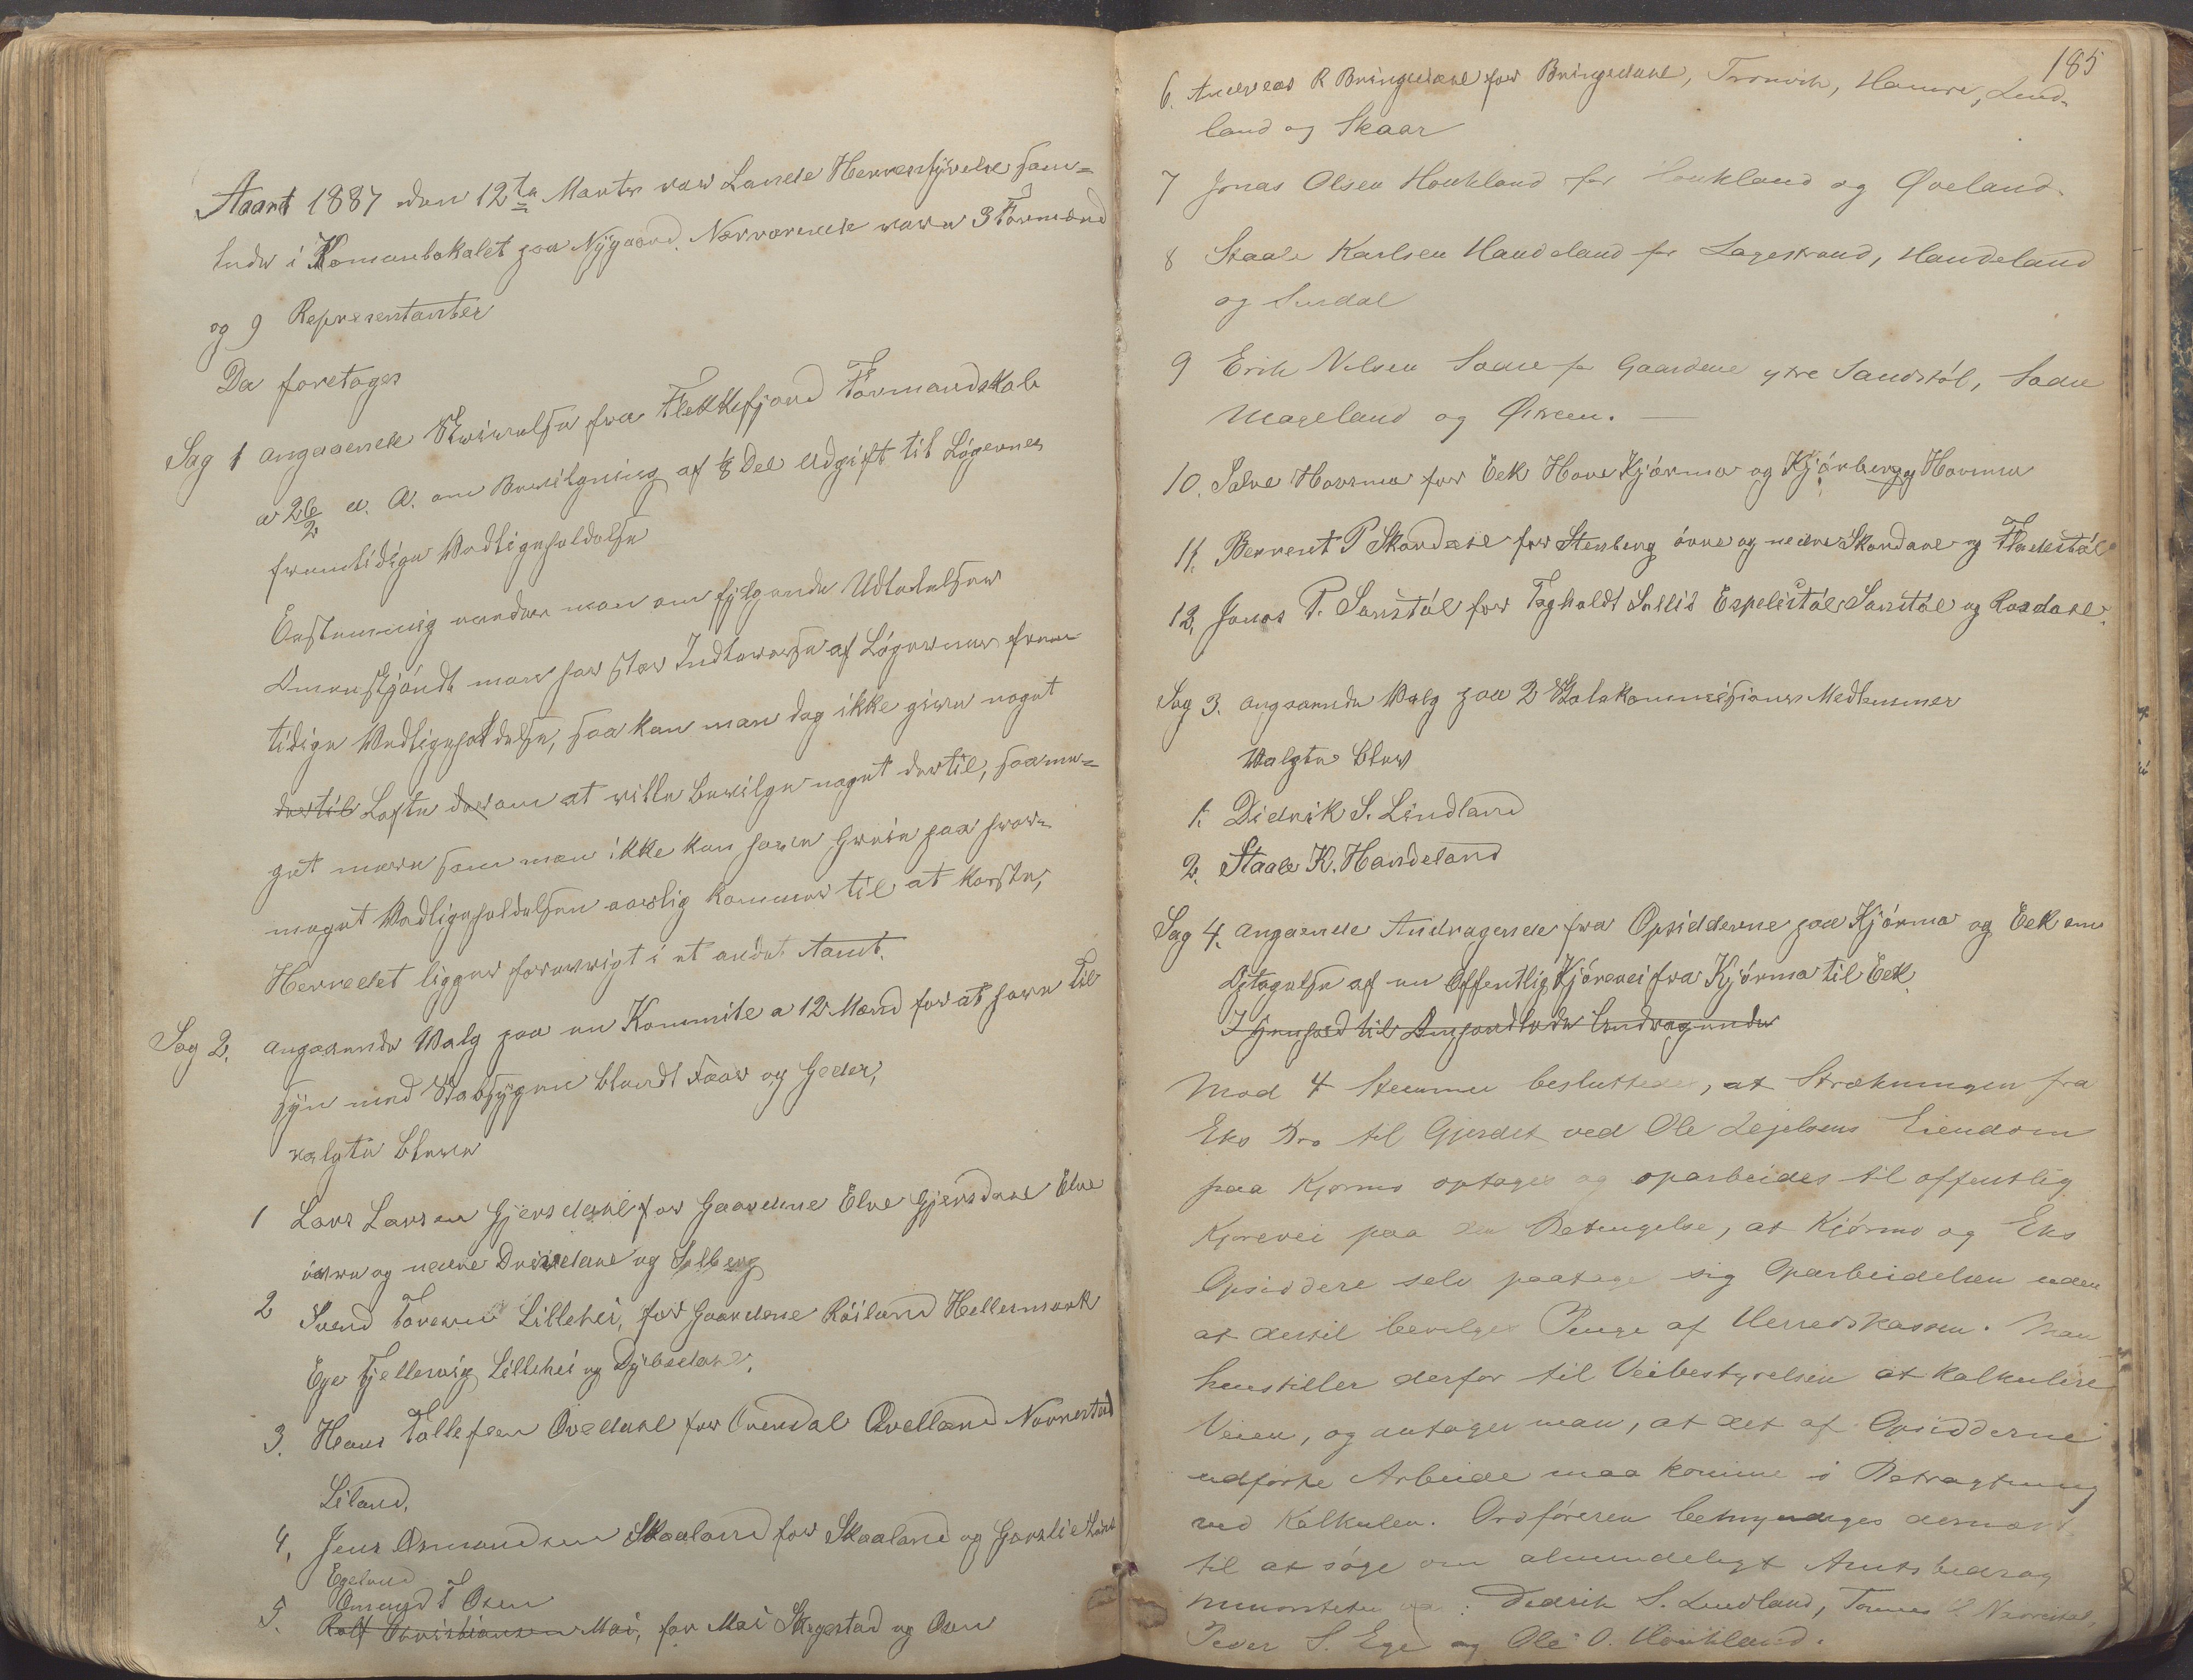 Aaret 1887 den 12te Marts var Lunde Herredsstyrelse sam-
lede i Komunelokalet paa Nygaard. Nærværende vare 3 Formænd
og 9 Representanter
Da foretages
Sag 1 angaaende Skrivelse fra Flekkefjord Formandskab
a 26/2 d. A. om Bevilgning af 1/8 Del Udgift til Løgernes
fremtidige Vedligeholdelse
Enstemmig enedes man om følgende Udtalelser
Omenskjøndt man har stor Interesse af Løgernes frem
tidige Vedligeholdelse, saa kan man dog ikke give noget
dertil Løfte derom at ville bevilge noget dertil, saame-
get mere som man ikke kan have Greie paa hvor-
meget Vedligeholdelsen aarlig kommer til at koste,
Herredet ligger forøvrigt i et andet Aamt.
Sag 2. angaaende Valg paa en Kommite a 12 Mænd for at have til
syn med Skabsygen blandt Faar og Geder,
valgte bleve
1 Lars Larsen Gjersdahl for Gaardene Elve Gjersdahl Elve
øvre og nedre Drivdahl og Solberg
2 Svend Toresen Lillehei, for Gaardene Røiland Hellesmark
Ege Fjellesvig Lillehei og Dybsdahl.
3. Hans Tollefsen Ovedahl for Ovendal Qvelland Novrestad
Liland.
4, Jens Osmundsen Skaaland for Skaaland og Haaslie
Egeland
Omund T Osen
5. Rolf Christiansen Moi, for Moi Skegestad og Osen
185
6. Andreas R Bringedahl for Bringedahl, Tronvik, Hamre, Lind-
land og Skaar
7 Jonas Olsen Houkland for Houkland og Øveland.
8 Staale Karlsen Handeland for Lagestrand, Handeland
og Surdal
9 Erik Nilsen Saae for Gaardene ytre Sandstøl, Saae
Mageland og
10. Salve Hovsmo for Eek Hove Kjørmo og Kjørberg og Hovsmo
11. Berent P Skardahl for Stenberg øvre og nedre Skardahl og Flackstøl
12, Jonas T. Sanstøl for Tagholdt Sallid Espelistøl Sanstøl og Rosdahl.
Sag 3. angaaende Valg paa 2 Skolekommissions Medlemmer
Valgte blev
1. Didrik S. Lindland
2. Staale K. Handeland
Sag 4. angaaende Andragende fra Opsidderne paa Kjørmo og Eek om
Optagelse af en Offentlig Kjørevei fra Kjørmo til Eek.
I Henhold til Andragende
Mod 4 Stemmer besluttedes, at Strækningen fra
Eks Bro til Gjerdet ved Ole Lejelsens Eiendom
paa Kjørmo optages og oparbeides til offentlig
Kjørevei paa den Betingelse, at Kjørmo og Eks
Opsiddere selv paatage sig Oparbeidelsen uden
at dertil bevilges Penge af Herredskassen. Man
henstiller derfor til Veibestyrelsen at kalkulere
Veien, og antager man, at det af Opsidderne
udførte Arbeide maa komme i Betragtning
ved Kalkulen. Ordføreren bemyndiges dernæst
til at søge om almindeligt Amtsbidrag
Minoriteten var: Didrik S. Lindland, Tønnes S. Navrestad,
Peder S. Ege og Ole O. Houkland.